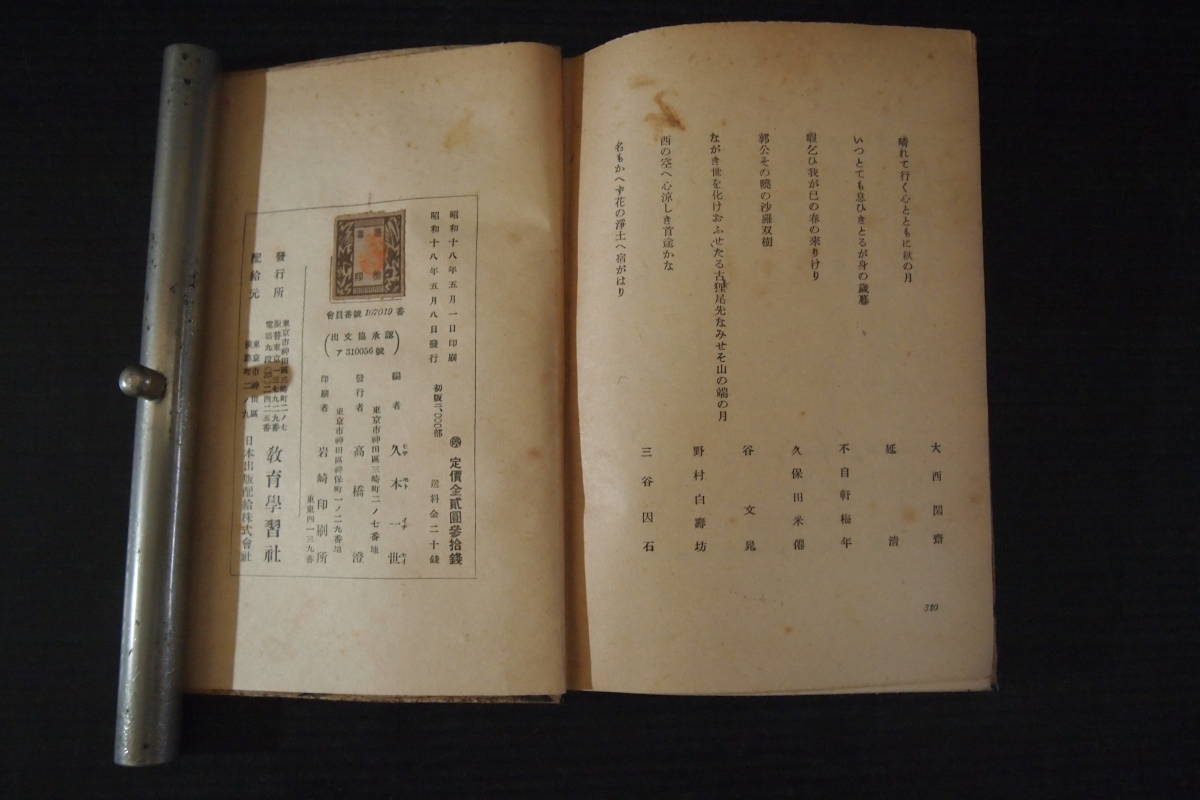 晴れて行く心とともに秋の月
大西閑齋
いつとても息ひきとるが身の歳暮
延清
暇乞ひ我が巳の春の来りけり
不自軒梅年
郭公その曉の沙羅双樹
久保田米僊
ながき世を化けおふせたる古狸尾先なみせそ山の端の月
谷文晁
西の空へ心涼しき首途かな
野村白壽坊
名もかへず花の淨土へ宿がはり
三谷因石
310
昭和十八年五月一日印刷
昭和十八年五月八日發行
初版二、〇〇〇部
定價金貳圓參拾錢
送料金二十錢
會員番號107019番
（出文協承認 ア310056號）
編者 久木一世
東京市神田區三崎町二ノ七番地
發行者 高橋澄
東京市神田區神保町一ノ二九番地
印刷者 岩崎印刷所
東東四一三九番
發行所
東京市神田區三崎町二ノ七
振替東京一三七九一九番
電話九段(33)二四二五番
敎育學習社
配給元
東京市神田區
淡路町二ノ九
日本出版配給株式會社